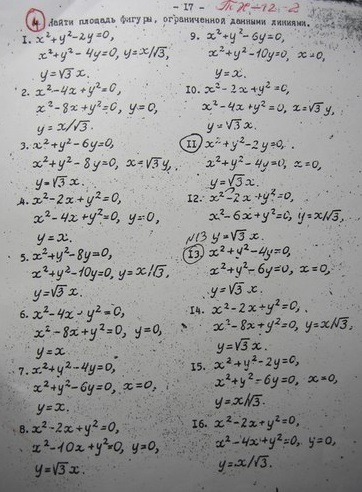 - 17 - ТЖ-12-2
4 Найти площадь фигуры, ограниченной данными линиями.
1. x²+y²-2y=0,
x²+y²-4y=0, y=x/√3,
y=√3 x.
2. x²-4x+y²=0,
x²-8x+y²=0, y=0,
y=x/√3.
3. x²+y²-6y=0,
x²+y²-8y=0, x=√3 y,
y=√3 x.
4. x²-2x+y²=0,
x²-4x+y²=0, y=0,
y=x.
5. x²+y²-8y=0,
x²+y²-10y=0, y=x/√3,
y=√3 x.
6. x²-4x+y²=0,
x²-8x+y²=0, y=0,
y=x.
7. x²+y²-4y=0,
x²+y²-6y=0, x=0,
y=x.
8. x²-2x+y²=0,
x²-10x+y²=0, y=0,
y=√3 x.
9. x²+y²-6y=0,
x²+y²-10y=0, x=0,
y=x.
10. x²-2x+y²=0,
x²-4x+y²=0, x=√3 y,
y=√3 x.
11 x²+y²-2y=0,
x²+y²-4y=0, x=0,
y=√3 x.
12. x²-2x+y²=0,
x²-6x+y²=0, y=x/√3,
№13 y=√3 x.
13. x²+y²-4y=0,
x²+y²-6y=0, x=0,
y=√3 x.
14. x²-2x+y²=0,
x²-8x+y²=0, y=x/√3,
y=√3 x.
15. x²+y²-2y=0,
x²+y²-6y=0, x=0,
y=x/√3.
16. x²-2x+y²=0,
x²-4x+y²=0, y=0,
y=x/√3.